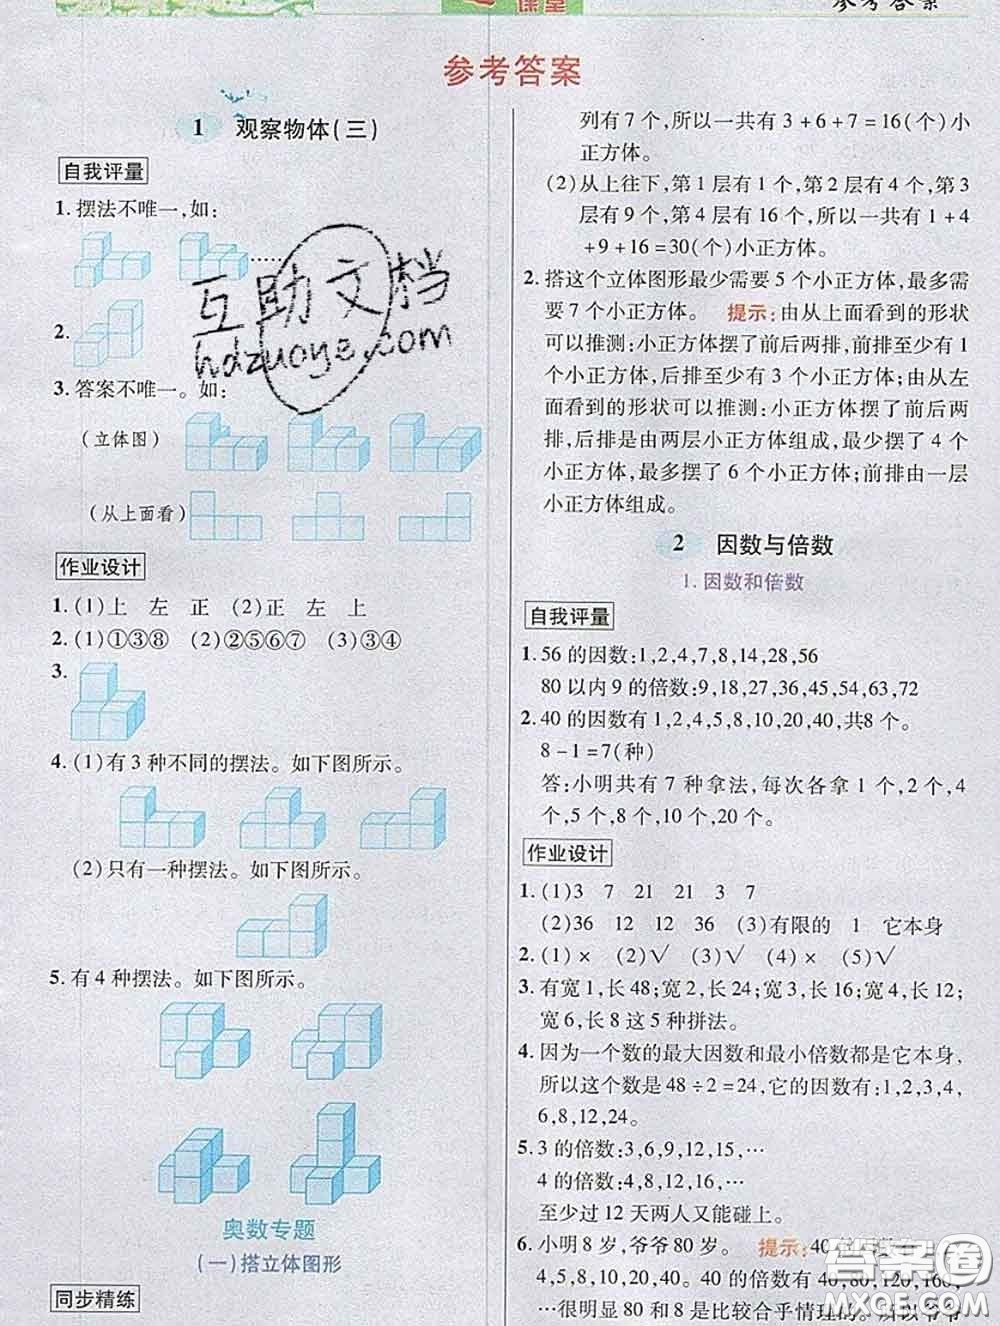 课堂
参考答案
参考答案
1 观察物体(三)
自我评量
1. 摆法不唯一,如:
……
2.
3. 答案不唯一。如:
(立体图)
(从上面看)
作业设计
1. (1)上 左 正 (2)正 左 上
2. (1)①③⑧ (2)②⑤⑥⑦ (3)③④
3.
4. (1)有 3 种不同的摆法。如下图所示。
(2)只有一种摆法。如下图所示。
5. 有 4 种摆法。如下图所示。
奥数专题
(一)搭立体图形
同步精练
列有 7 个,所以一共有 3 + 6 + 7 = 16(个)小
正方体。
(2)从上往下,第 1 层有 1 个,第 2 层有 4 个,第 3
层有 9 个,第 4 层有 16 个,所以一共有 1 + 4
+ 9 + 16 = 30(个)小正方体。
2. 搭这个立体图形最少需要 5 个小正方体,最多需
要 7 个小正方体。 提示:由从上面看到的形状
可以推测:小正方体摆了前后两排,前排至少有 1
个小正方体,后排至少有 3 个小正方体;由从左
面看到的形状可以推测:小正方体摆了前后两
排,后排是由两层小正方体组成,最少摆了 4 个
小正方体,最多摆了 6 个小正方体;前排由一层
小正方体组成。
2 因数与倍数
1.因数和倍数
自我评量
1. 56 的因数:1,2,4,7,8,14,28,56
80 以内 9 的倍数:9,18,27,36,45,54,63,72
2. 40 的因数有 1,2,4,5,8,10,20,40,共8 个。
8 - 1 = 7(种)
答:小明共有 7 种拿法,每次各拿 1 个、2 个、4
个、5 个、8 个、10 个、20 个。
作业设计
1. (1)3 7 21 21 3 7
(2)36 12 12 36 (3)有限的 1 它本身
2. (1) × (2)√ (3)√ (4) × (5)√
3. 有宽 1,长 48;宽 2,长 24;宽 3,长 16;宽 4,长 12;
宽 6,长 8 这 5 种拼法。
4. 因为一个数的最大因数和最小倍数都是它本身,
所以这个数是 48 ÷ 2 = 24,它的因数有:1,2,3,4,
6,8,12,24。
5. 3 的倍数:3,6,9,12,15,…
4 的倍数:4,8,12,16,…
至少过 12 天两人又能碰上。
6. 小明 8 岁,爷爷 80 岁。 提示:40
4,5,8,10,20,40。40 的倍数有 40,80,120,160,
…很明显 80 和 8 是比较合乎情理的。所以爷爷
互助文档
hdzuoye.com
答案圈
MXQE.COM